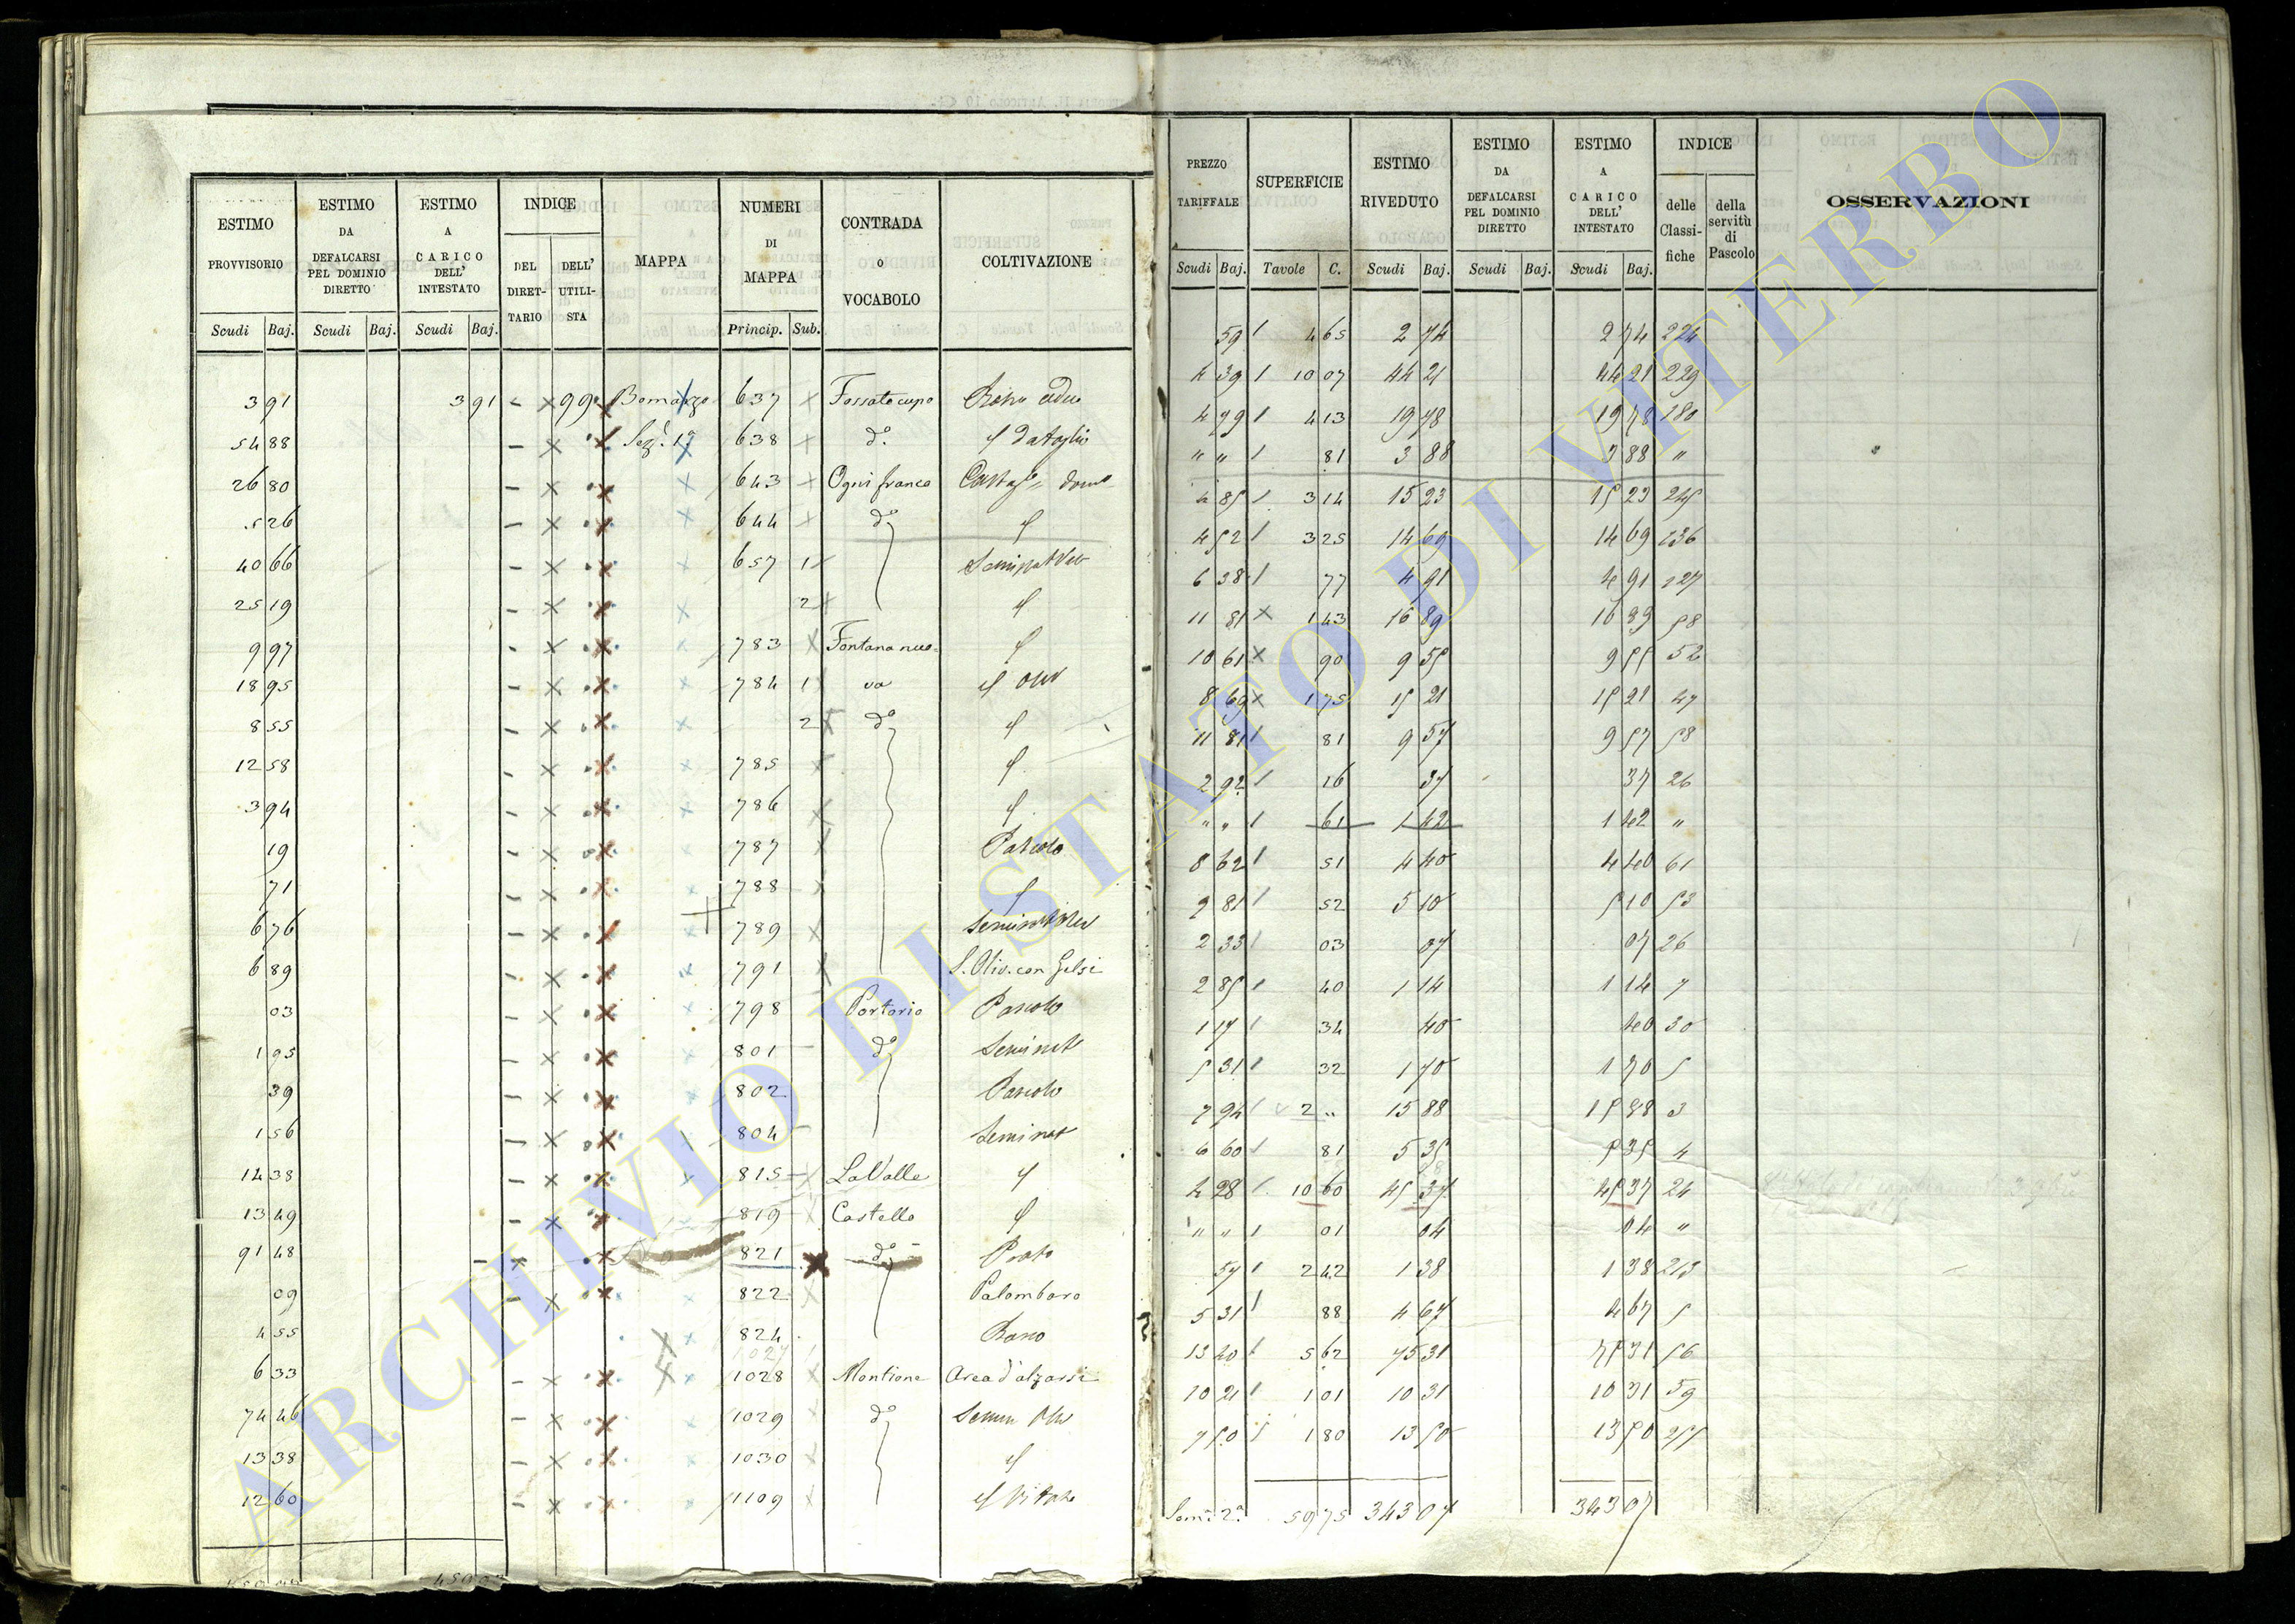 ESTIMO PROVVISORIO | ESTIMO DA DEFALCARSI PEL DOMINIO DIRETTO | ESTIMO A CARICO DELL' INTESTATO | INDICE | MAPPA | NUMERI DI MAPPA | CONTRADA O VOCABOLO | COLTIVAZIONE
DEL DIRETTARIO | DELL' UTILISTA
Scudi | Baj. | Scudi | Baj. | Scudi | Baj. | Princip. | Sub.
3 91 | 3 91 | - × 99 | Bomarzo | 637 | Fossato cupo
54 88 | - × | Sez. 1ª | 638 | d.º | da Taglio
26 80 | - × | 643 | Ogni franca
5 26 | - × | 644 | dº
40 66 | - × | 657 | 1
25 19 | - × | 2
9 97 | - × | 783 | Fontana nuo=
18 95 | - × | 784 | 1 | va
8 55 | - × | 2 | dº
12 58 | - × | 785
3 94 | - × | 786
19 | - × | 787 | Pascolo
71 | - × | 788
6 76 | - × | 789
6 89 | - × | 791 | S. Oliv. con Gelsi
03 | - × | 798 | Portorio | Pascolo
1 95 | - × | 801 | dº | Seminat
39 | - × | 802 | Pascolo
1 56 | - × | 804 | Seminat
14 38 | - × | 815 | La Valle
13 49 | - × | 819 | Castello
91 48 | - × | 821 | dº | Prato
09 | - × | 822 | Palombaro
4 55 | 824
6 33 | - × | 1028 | Montione | Area d'alzarsi
74 46 | - × | 1029 | dº
13 38 | - × | 1030
12 60 | - × | 1109
PREZZO TARIFFALE | SUPERFICIE | ESTIMO RIVEDUTO | ESTIMO DA DEFALCARSI PEL DOMINIO DIRETTO | ESTIMO A CARICO DELL' INTESTATO | INDICE | OSSERVAZIONI
delle Classifiche | della servitù di Pascolo
Scudi | Baj. | Tavole | C. | Scudi | Baj. | Scudi | Baj. | Scudi | Baj.
59 | 4 65 | 2 74 | 2 74 | 224
4 39 | 10 07 | 44 21 | 44 21 | 229
4 79 | 4 13 | 19 78 | 19 78 | 180
" " | 81 | 3 88 | 3 88 | "
4 85 | 3 14 | 15 23 | 15 23 | 245
4 52 | 3 25 | 14 69 | 14 69 | 136
6 38 | 77 | 4 91 | 4 91 | 127
11 81 | 1 43 | 16 89 | 16 89 | 58
10 61 | 90 | 9 55 | 9 55 | 52
8 69 | 1 75 | 15 21 | 15 21 | 47
11 81 | 81 | 9 57 | 9 57 | 58
2 92 | 16 | 37 | 37 | 26
" " | 61 | 1 42 | 1 42 | "
8 62 | 51 | 4 40 | 4 40 | 61
9 81 | 52 | 5 10 | 5 10 | 53
2 33 | 03 | 07 | 07 | 26
2 85 | 40 | 1 14 | 1 14 | 7
1 17 | 34 | 40 | 40 | 30
5 31 | 32 | 1 70 | 1 70 | 5
7 94 | 2 " | 15 88 | 15 88 | 3
6 60 | 81 | 5 35 | 5 35 | 4
4 28 | 10 60 | 45 37 | 45 37 | 24
" " | 01 | 04 | 04 | "
57 | 2 42 | 1 38 | 1 38 | 213
5 31 | 88 | 4 67 | 4 67 | 5
13 40 | 5 62 | 75 31 | 75 31 | 56
10 21 | 1 01 | 10 31 | 10 31 | 59
7 50 | 1 80 | 13 50 | 13 50 | 255
Somª 2ª | 59 75 | 343 07 | 343 07
ARCHIVIO DI STATO DI VITERBO